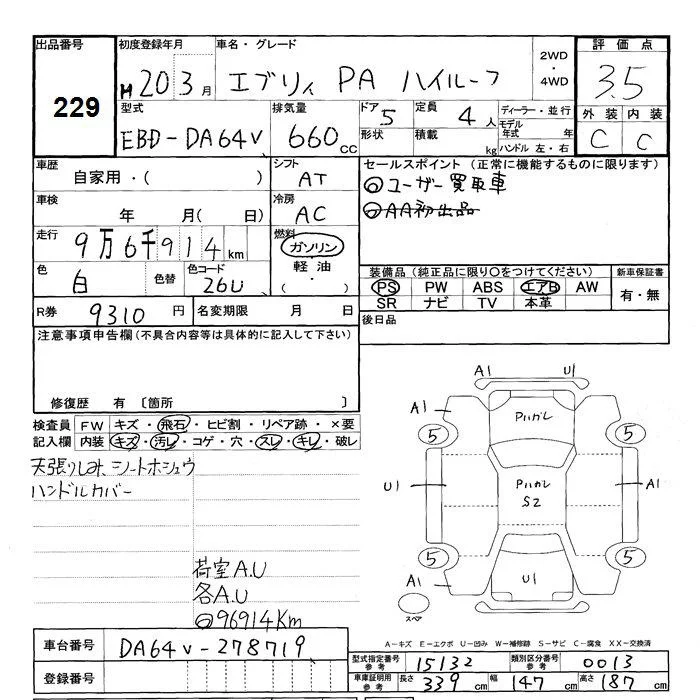 出品番号 初度登録年月 車名・グレード 2WD ・ 4WD 評価点
229 H20 3月 エブリィ PA ハイルーフ 3.5
型式 排気量 ドア 定員 ディーラー・並行 外装 内装
EBD-DA64V 660cc 5 4人 モデル年式 年 C C
形状 積載 kg ハンドル 左・右
車歴 シフト セールスポイント (正常に機能するものに限ります)
自家用・( ) AT ◎ユーザー買取車
車検 冷房 ◎AA初出品
年 月( 日) AC
走行 燃料
9万6千914km ガソリン
色 色替 色コード 軽油 装備品 (純正品に限り○をつけてください) 新車保証書
白 26U ・( ) PS PW ABS エアB AW 有・無
SR ナビ TV 本革
R券 9310円 名変期限 月 日 後日品
注意事項申告欄(不具合内容等は具体的に記入して下さい)
修復歴 有 〔箇所 〕
検査員 FW キズ・飛石・ヒビ割・リペア跡・×要
記入欄 内装 キズ・汚レ・コゲ・穴・スレ・キレ・破レ
天張りしみ、シートホシュウ
ハンドルカバー
荷室A.U
各A.U
◎96914Km
A1 U1
A1 Pハガレ
5 5
U1 Pハガレ A1
S2
5 5
A1 U1
スペア
A-キズ E-エクボ U-凹み W-補修跡 S-サビ C-腐食 XX-交換済
車台番号 DA64V-278719
登録番号
型式指定番号 参考 15132 類別区分番号 参考 0013
車庫証明用 参考 長さ 339cm 幅 147cm 高さ 187cm